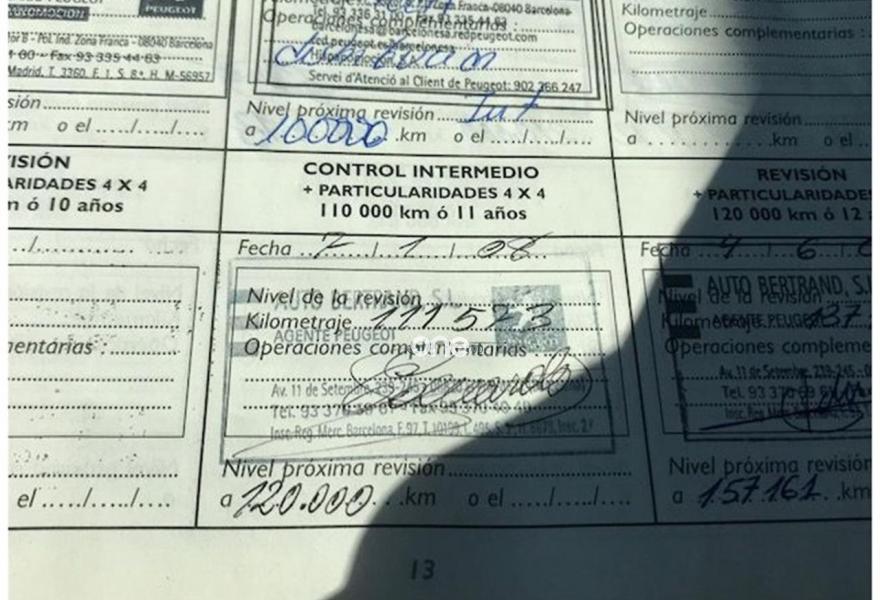 PEUGEOT
Zona Franca - 08040 Barcelona
Operaciones complementarias :
barcelonesa@barcelonesa.redpeugeot.com
Red.peugeot.es/barcelonesa
Servei d'Atenció al Client de Peugeot: 902 366 247
Pol. Ind. Zona Franca - 08040 Barcelona
Fax 93 335 44 63
Madrid, T. 3360, F. 1, S. 8ª, H. M-56957
Kilometraje
Operaciones complementarias :
isión
m o el ..../..../....
Nivel próxima revisión
a 100000 .km o el ..../..../....
Nivel próxima revisión
a ..........km o el
VISIÓN
ARIDADES 4 X 4
m ó 10 años
CONTROL INTERMEDIO
+ PARTICULARIDADES 4 X 4
110 000 km ó 11 años
REVISIÓN
+ PARTICULARIDADES
120 000 km ó 12
Fecha 7/1/08
Nivel de la revisión
AUTO BERTRAND, S.L.
Kilometraje 111523
AGENTE PEUGEOT
Operaciones complementarias :
one
Av. 11 de Setembre, 239-245
Tel. 93 370
Insc. Reg. Merc. Barcelona, F. 97, T.
Nivel próxima revisión
a 120.000 .km o el ..../..../....
Fecha 4 6
AUTO BERTRAND, S.L
Nivel de la revisión
AGENTE PEUGEOT
Kilometraje 137
Operaciones compleme
Av. 11 de Setembre, 239-245
Tel. 93 370
Insc. Reg. Merc. Barcelona
Nivel próxima revisión
a 157161 .km
entarias :
el ..../..../....
13